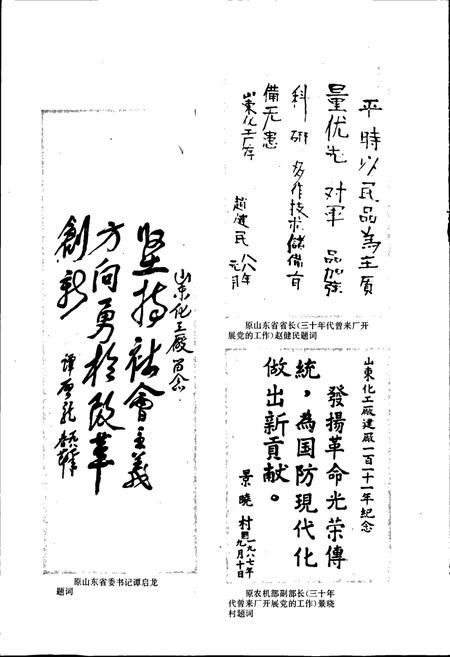 平時以民品為主质
量优先 对军品加强
科研 多作技术儲備有
備无患
山東化工厂存
趙健民 八八年
元月
原山东省省长(三十年代曾来厂开
展党的工作)赵健民题词
山東化工廠留念
坚持社會主義
方向勇於改革
創新
譚啓龍
原山东省委书记谭启龙
题词
山東化工廠建廠一百一十一年紀念
發揚革命光荣傳
統,為国防現代化
做出新貢献。
景曉村
一九八七年
九月十日
原农机部副部长(三十年
代曾来厂开展党的工作)景晓
村题词